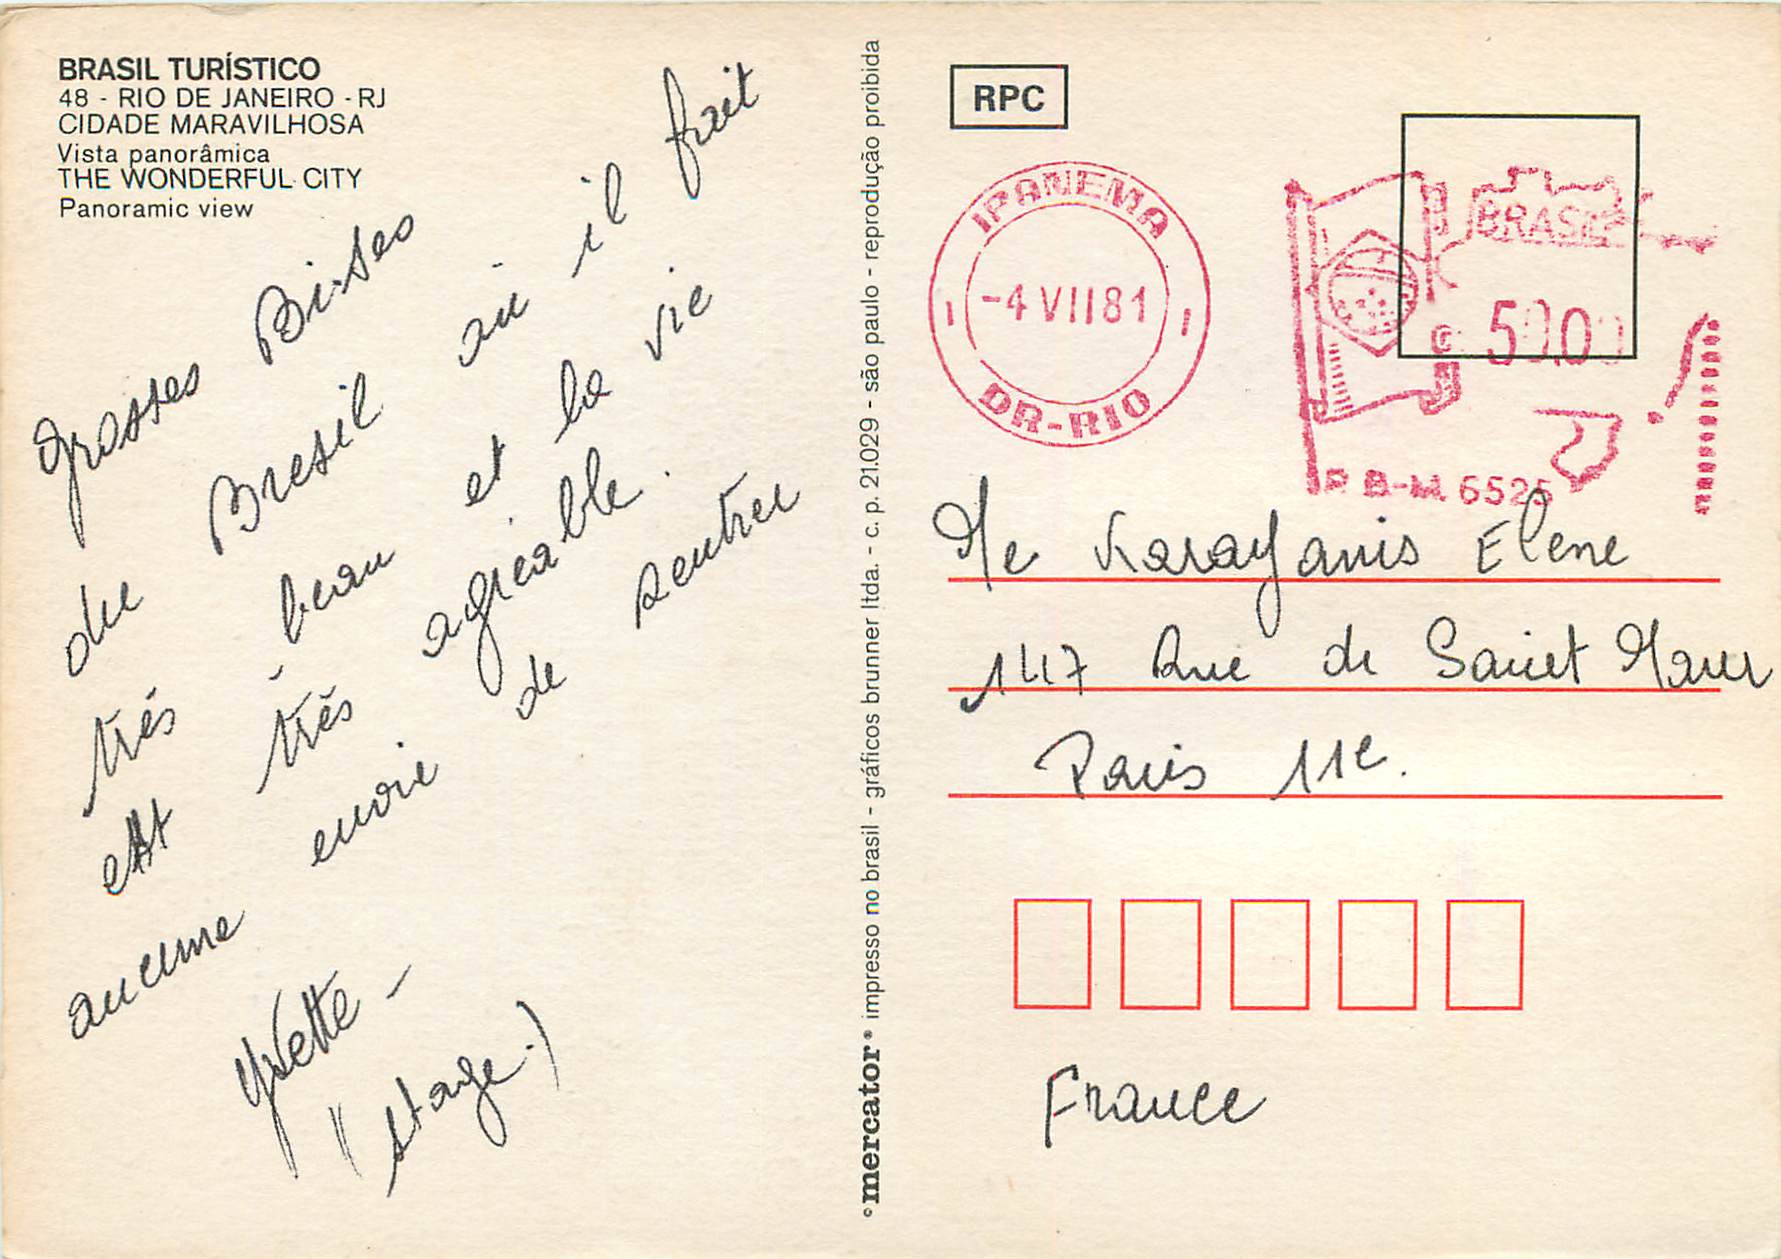 BRASIL TURÍSTICO
48 - RIO DE JANEIRO - RJ
CIDADE MARAVILHOSA
Vista panorâmica
THE WONDERFUL CITY
Panoramic view
Grosses Bises
du Bresil ou il fait
trés beau et la vie
est trés agreable.
aucune envie de rentrer
Yvette -
(stage.)
© mercator ® impresso no brasil - gráficos brunner ltda. - c. p. 21.029 - são paulo - reprodução proibida
RPC
IPANEMA
-4 VII 81
DR-RIO
BRASIL
50,0
P B-M 6525
Me Karayanis Elene
147 Rue de Saint Maur
Paris 11e.
France